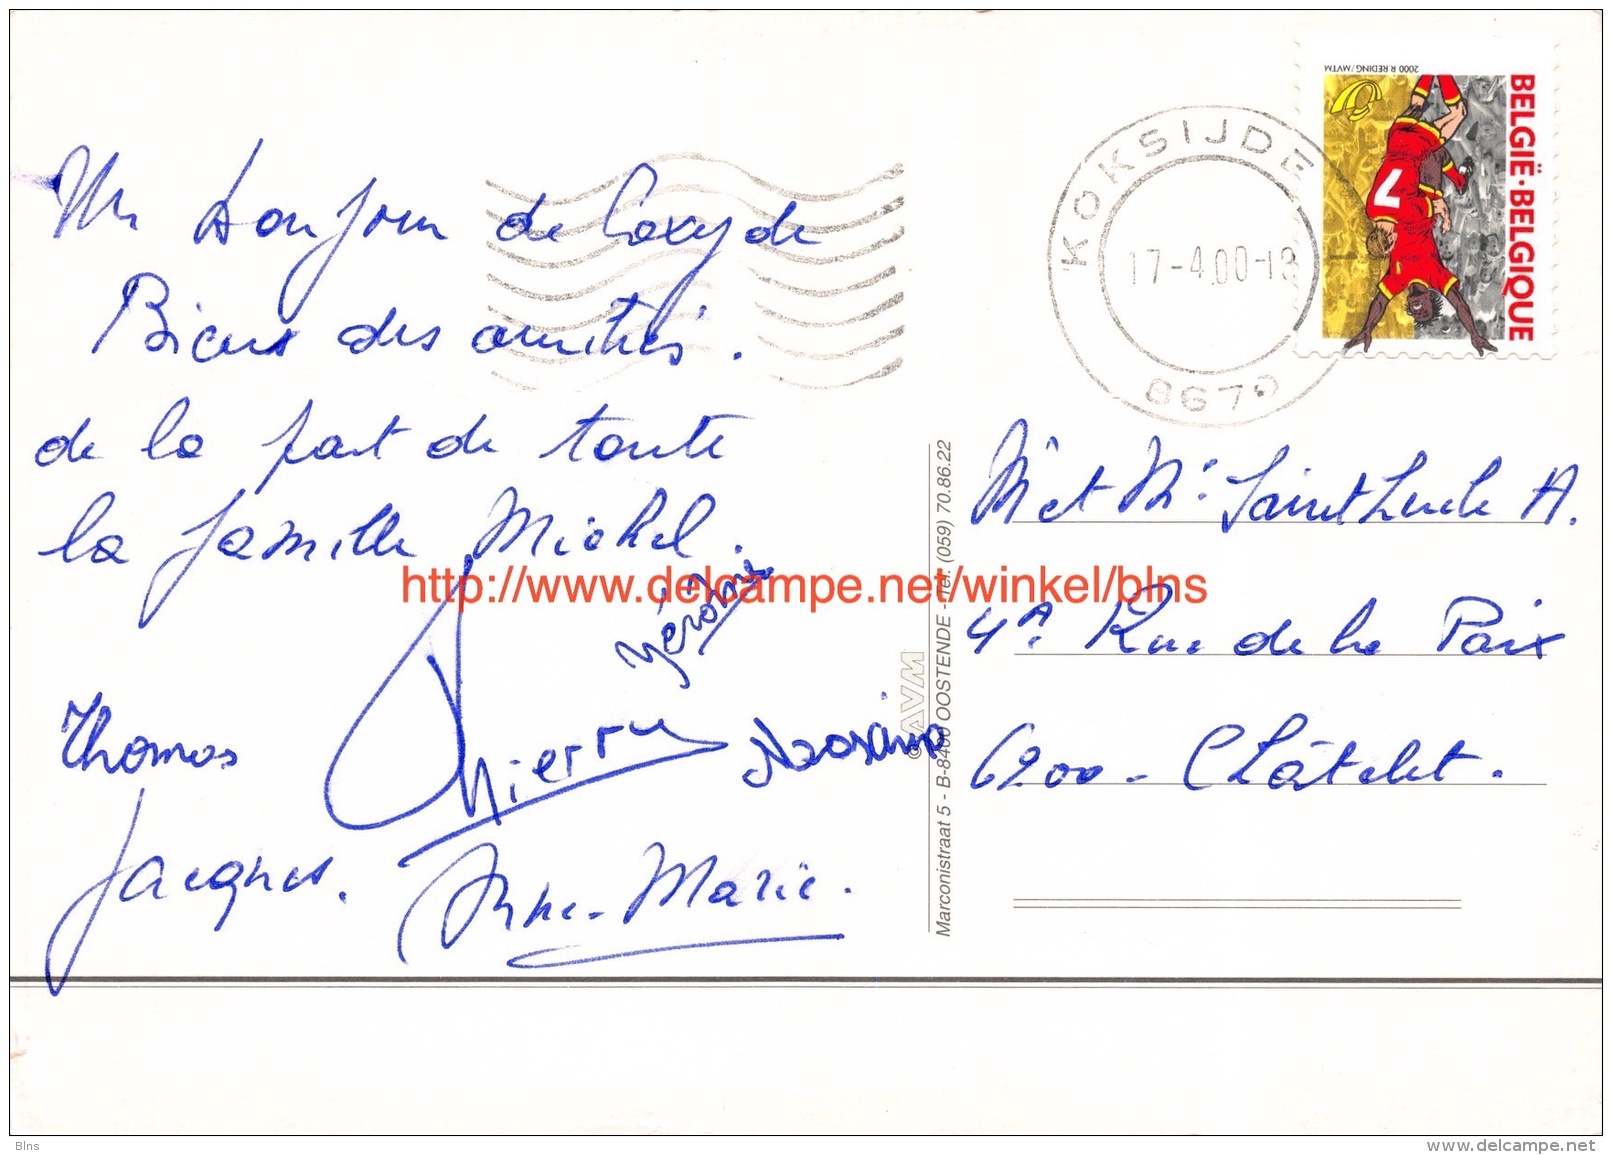 Un bonjour de Coxyde
Bien des amitiés.
de la part de toute
la famille Michel.
Jérôme
Thomas
Thierry
Jacques.
Anne-Marie.
KOKSIJDE
17-4.00-18
8670
2000 R. REDING/MVTM
7
BELGIË·BELGIQUE
© AVM
Marconistraat 5 - B-8400 OOSTENDE - Tel. (059) 70.86.22
Mr et Me Saint A.
4A. Rue de la Paix
6200 - Châtelet.
http://www.delcampe.net/winkel/blns
Blns
www.delcampe.net